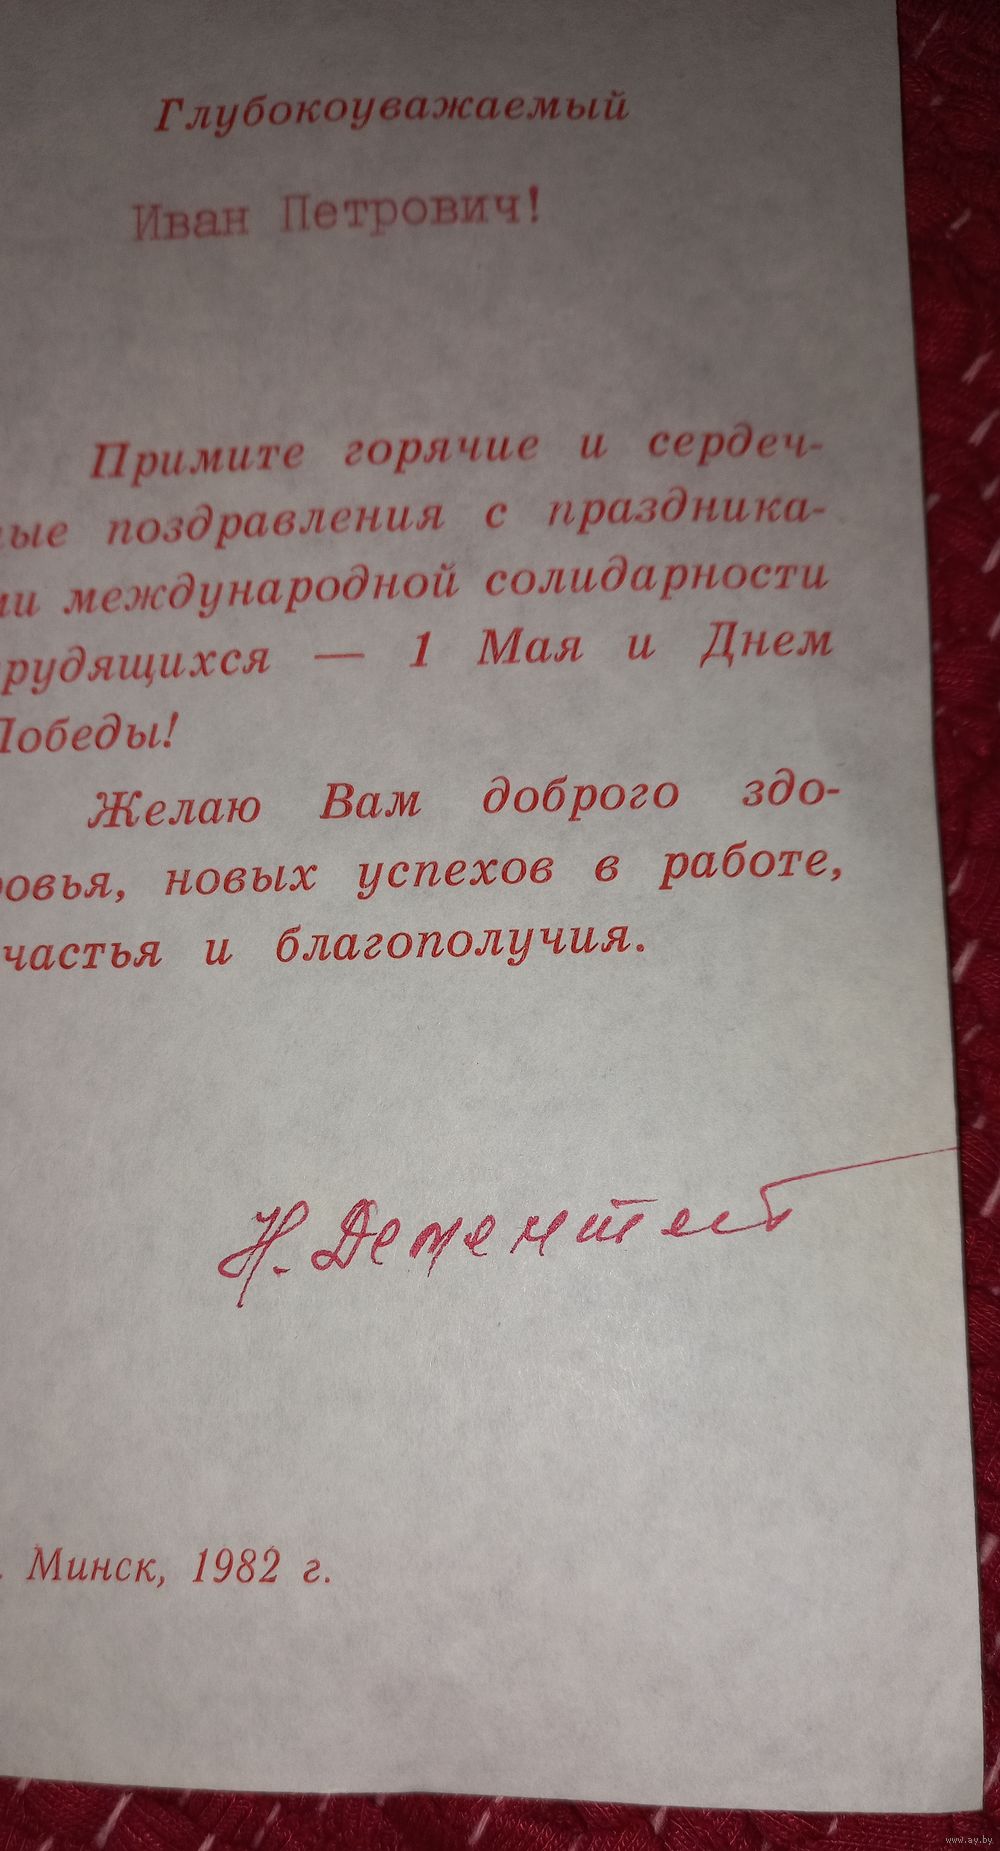 Глубокоуважаемый
Иван Петрович!
Примите горячие и сердеч-
ные поздравления с праздника-
ми международной солидарности
трудящихся — 1 Мая и Днем
Победы!
Желаю Вам доброго здо-
ровья, новых успехов в работе,
счастья и благополучия.
Н. Дементей
. Минск, 1982 г.
www.ay.by